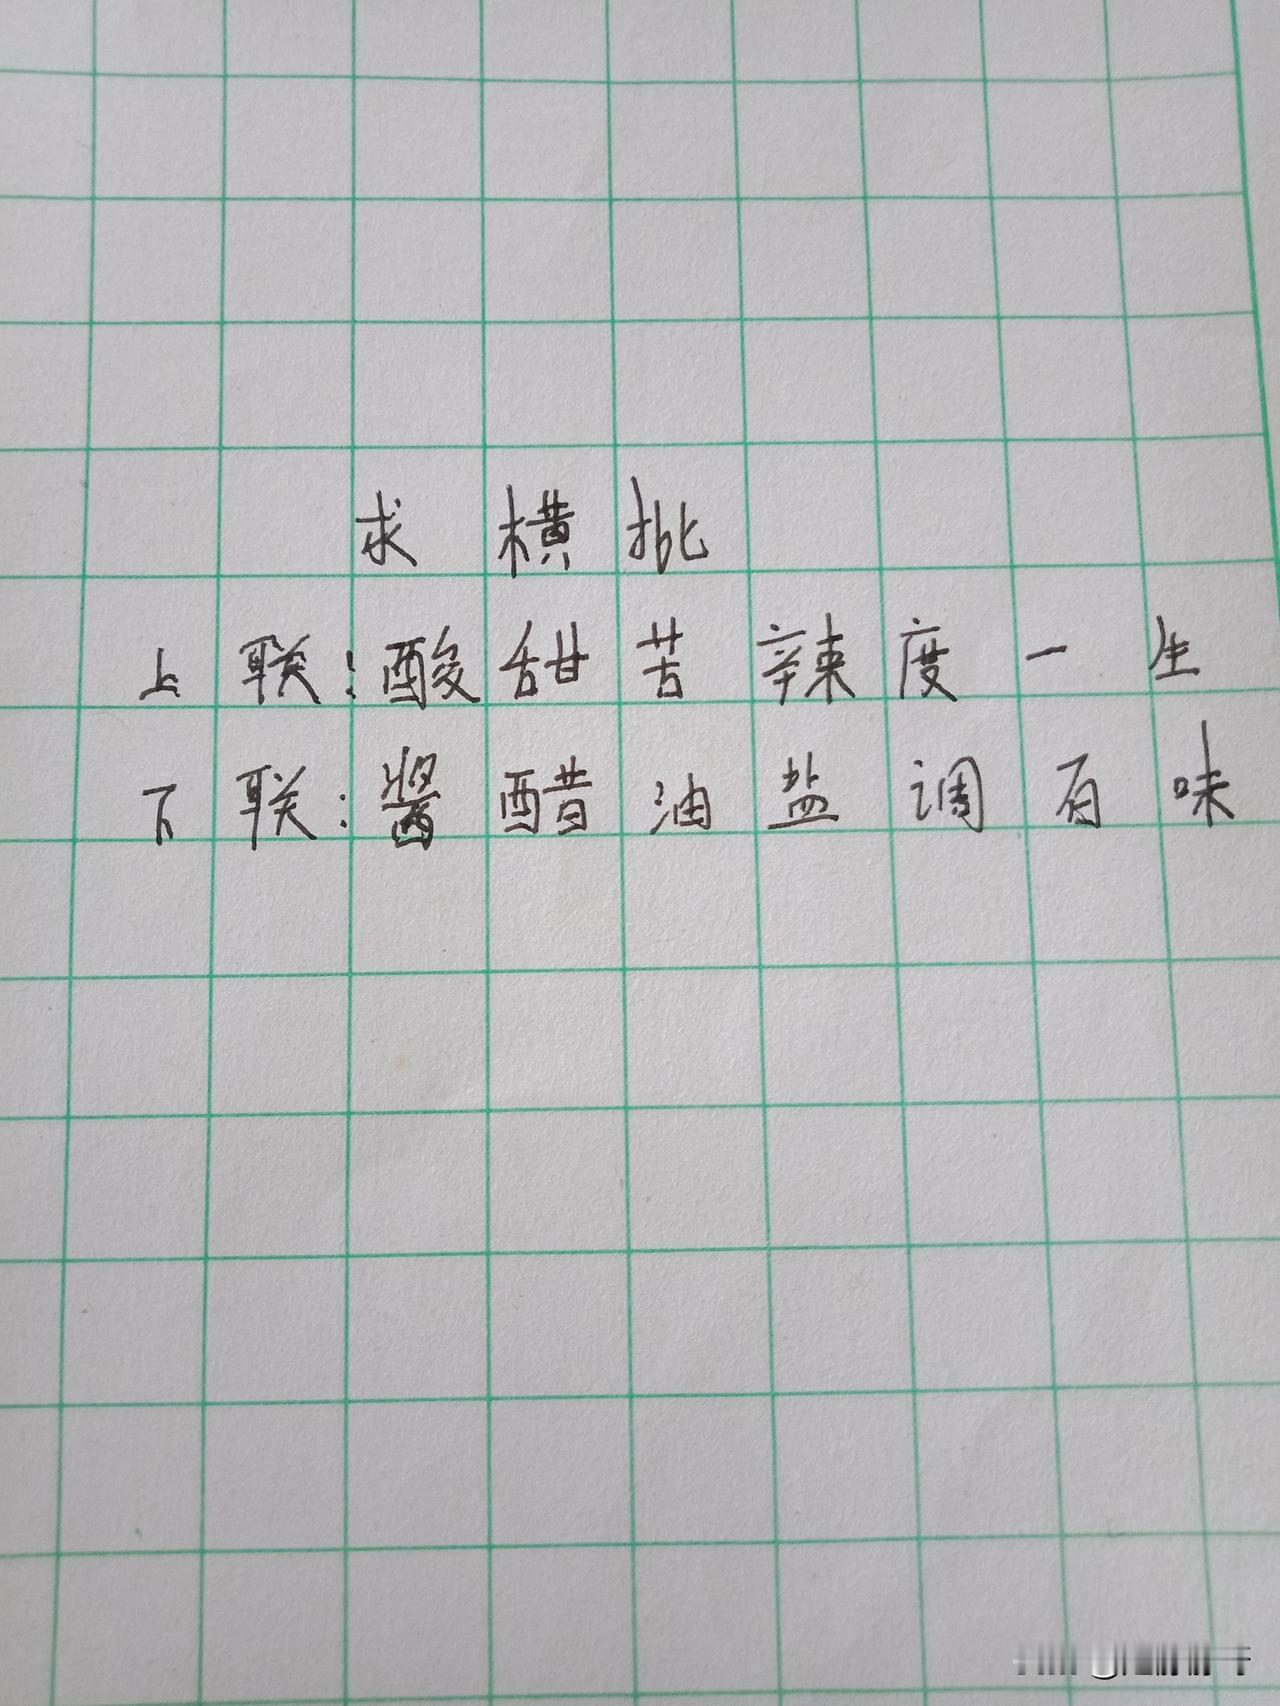 求横批
上联:酸甜苦辣度一生
下联:醬醋油盐调百味